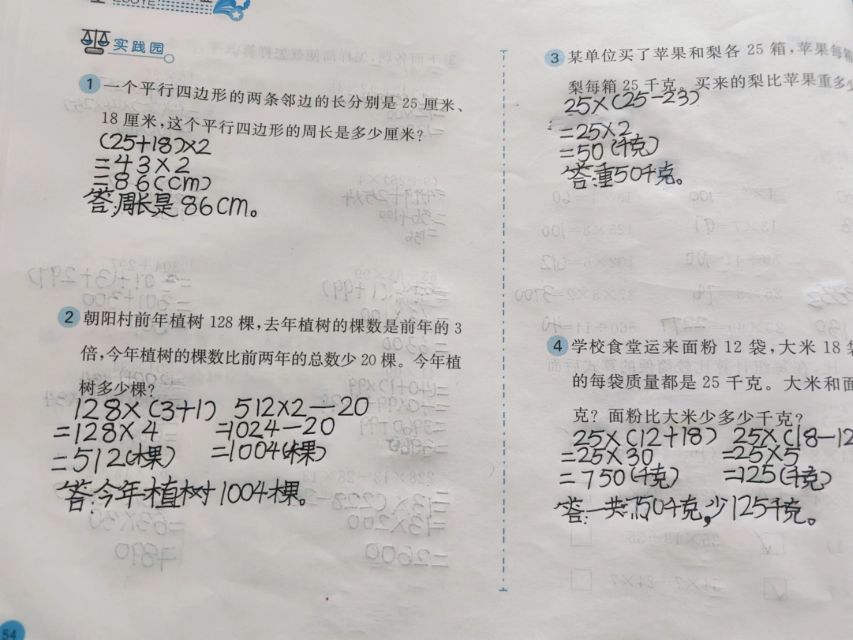 实践园
1 一个平行四边形的两条邻边的长分别是 25 厘米、
18 厘米,这个平行四边形的周长是多少厘米?
(25+18)×2
=43×2
=86(cm)
答:周长是86cm。
2 朝阳村前年植树 128 棵,去年植树的棵数是前年的 3
倍,今年植树的棵数比前两年的总数少 20 棵。今年植
树多少棵?
128×(3+1) 512×2-20
=128×4 =1024-20
=512(棵) =1004(棵)
答:今年植树1004棵。
54
3 某单位买了苹果和梨各 25 箱,苹果每箱
梨每箱 25 千克。买来的梨比苹果重多少
25×(25-23)
=25×2
=50(千克)
答:重50千克。
4 学校食堂运来面粉 12 袋,大米 18
的每袋质量都是 25 千克。大米和面
克? 面粉比大米少多少千克?
25×(12+18) 25×(18-12
=25×30 =25×5
=750(千克) =125(千克)
答:一共750千克,少125千克。